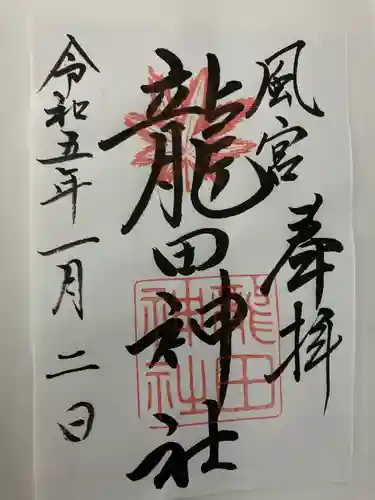 風宮 奉拝
龍田神社
龍田神社
令和五年一月二日